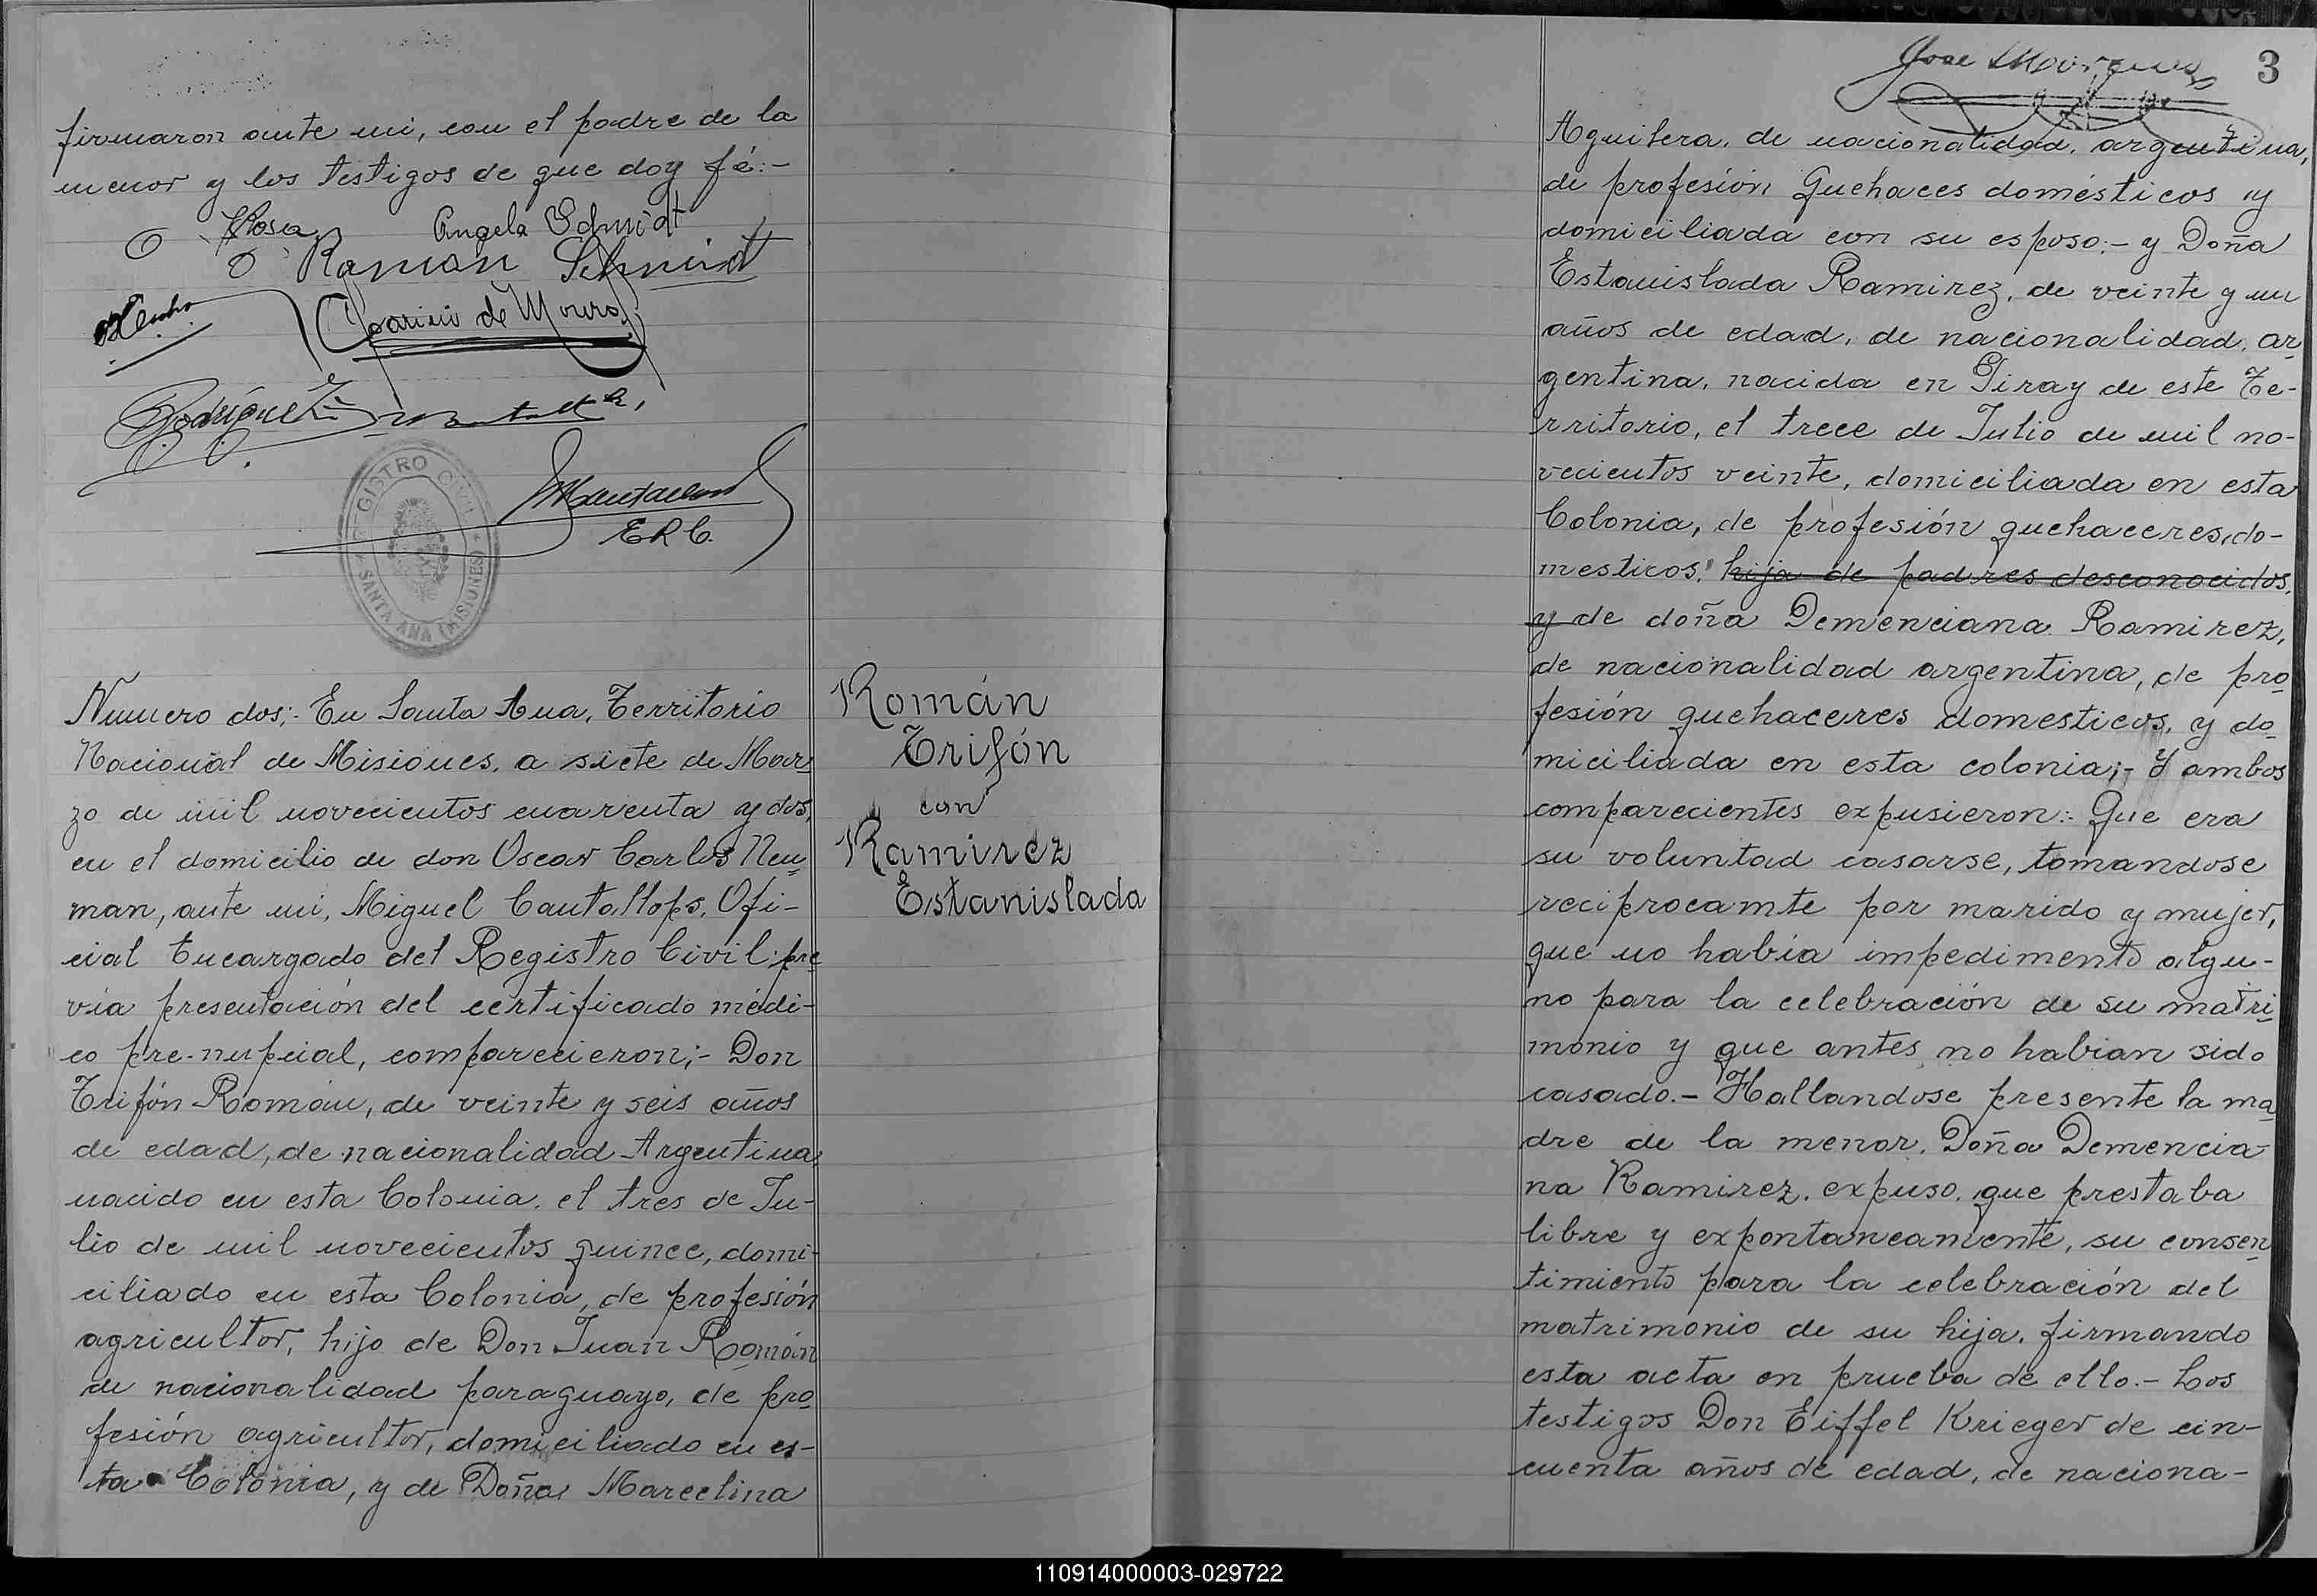 firmaron ante mi, con el padre de la
menor y los testigos de que doy fé:-
Rosa Angela Schmidt
Ramón Schmidt
de Moura
Rodríguez
E R C.
REGISTRO CIVIL
SANTA ANA (MISIONES)
Numero dos;- En Santa Ana, Territorio
Nacional de Misiones, a siete de Mar
zo de mil novecientos cuarenta y dos,
en el domicilio de don Oscar Carlos Neu
man, ante mi, Miguel Cantallops, Ofi-
cial Encargado del Registro Civil: pre
via presentación del certificado médi-
co pre-nupcial, comparecieron;- Don
Trifón Román, de veinte y seis años
de edad, de nacionalidad Argentina,
nacido en esta Colonia, el tres de Ju-
lio de mil novecientos quince, domi-
ciliado en esta Colonia, de profesión
agricultor, hijo de Don Juan Román
de nacionalidad paraguayo, de pro
fesión agricultor, domiciliado en es-
ta Colonia, y de Doña Marcelina
Román
Trifón
con
Ramirez
Estanislada
Jose
3
Aguilera, de nacionalidad, argentina,
de profesión Quehaces domésticos y
domiciliada con su esposo:- y Doña
Estanislada Ramirez, de veinte y un
años de edad, de nacionalidad, ar
gentina, nacida en Piray de este Te-
rritorio, el trece de Julio de mil no-
vecientos veinte, domiciliada en esta
Colonia, de profesión quehaceres, do-
mesticos, hija de padres desconocidos,
y de doña Demenciana Ramirez,
de nacionalidad argentina, de pro
fesión quehaceres domesticos, y do
miciliada en esta colonia;- Y ambos
comparecientes expusieron:- Que era
su voluntad casarse, tomandose
reciprocamte por marido y mujer,
que no había impedimento algu-
no para la celebración de su matri
monio y que antes no habian sido
casado.- Hallandose presente la ma
dre de la menor, Doña Demencia-
na Ramirez, expuso, que prestaba
libre y expontaneamente, su consen
timiento para la celebración del
matrimonio de su hija, firmando
esta acta en prueba de ello.- Los
testigos Don Eiffel Krieger de cin-
cuenta años de edad, de naciona-
110914000003-029722